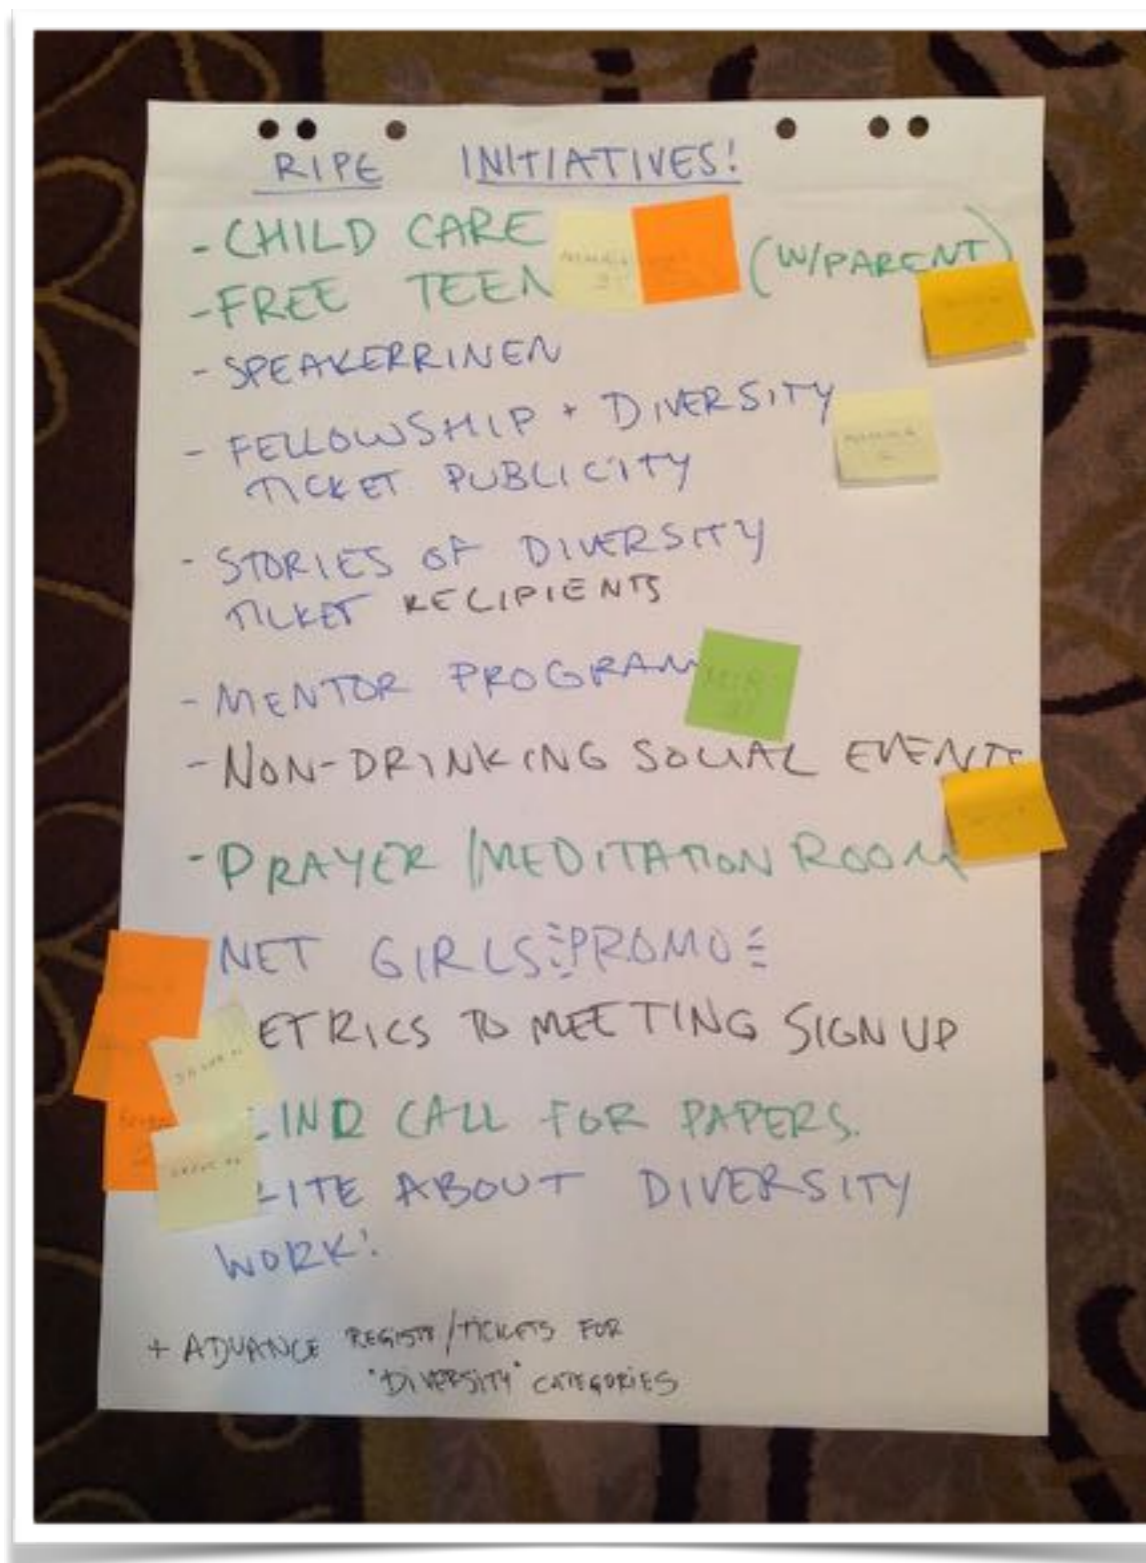 RIPE INITIATIVES!
- CHILD CARE
- FREE TEEN (W/PARENT)
- SPEAKERRINEN
- FELLOWSHIP + DIVERSITY
TICKET PUBLICITY
- STORIES OF DIVERSITY
TICKET RECIPIENTS
- MENTOR PROGRAM
- NON-DRINKING SOCIAL EVENTS
- PRAYER / MEDITATION ROOM
NET GIRLS PROMO
ETRICS TO MEETING SIGN UP
LIND CALL FOR PAPERS.
ITE ABOUT DIVERSITY
WORK!
+ ADVANCE REGISTR/TICKETS FOR
"DIVERSITY" CATEGORIES